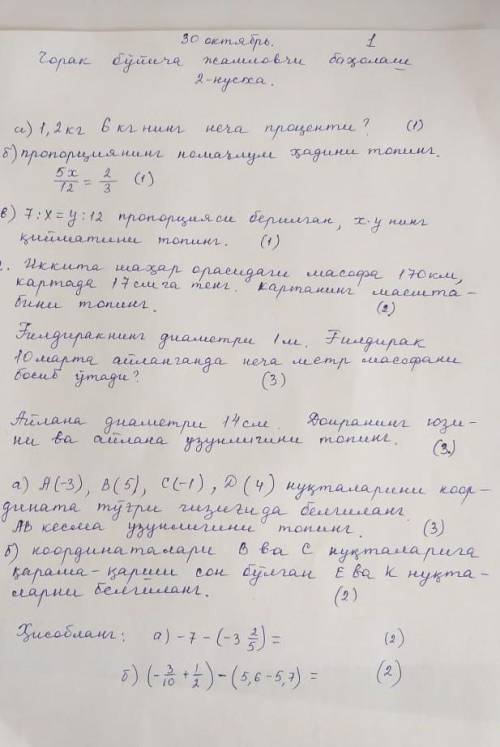 30 октябрь. 1
Чорак бўйича жамловчи баҳолаш
2-нусха.
а) 1,2 кг 6 кг нинг неча проценти? (1)
б) пропорциянинг номаълум ҳадини топинг.
5x/12 = 2/3 (1)
в) 7:x=y:12 пропорцияси берилган, x·y нинг
қийматини топинг. (1)
2. Иккита шаҳар орасидаги масофа 170 км,
картада 17 смга тенг. Картанинг масшта-
бини топинг. (2)
Ғилдиракнинг диаметри 1 м. Ғилдирак
10 марта айланганда неча метр масофани
босиб ўтади? (3)
Айлана диаметри 14 см. Доиранинг юзи-
ни ва айлана узунлигини топинг. (3)
а) А(-3), В(5), С(-1), D(4) нуқталарини коор-
дината тўғри чизиғида белгиланг
АВ кесма узунлигини топинг. (3)
б) координаталари В ва С нуқталарига
қарама-қарши сон бўлган Е ва К нуқта-
ларни белгиланг. (2)
Ҳисобланг: а) -7-(-3 2/5)= (2)
б) (-3/10+1/2)-(5,6-5,7)= (2)